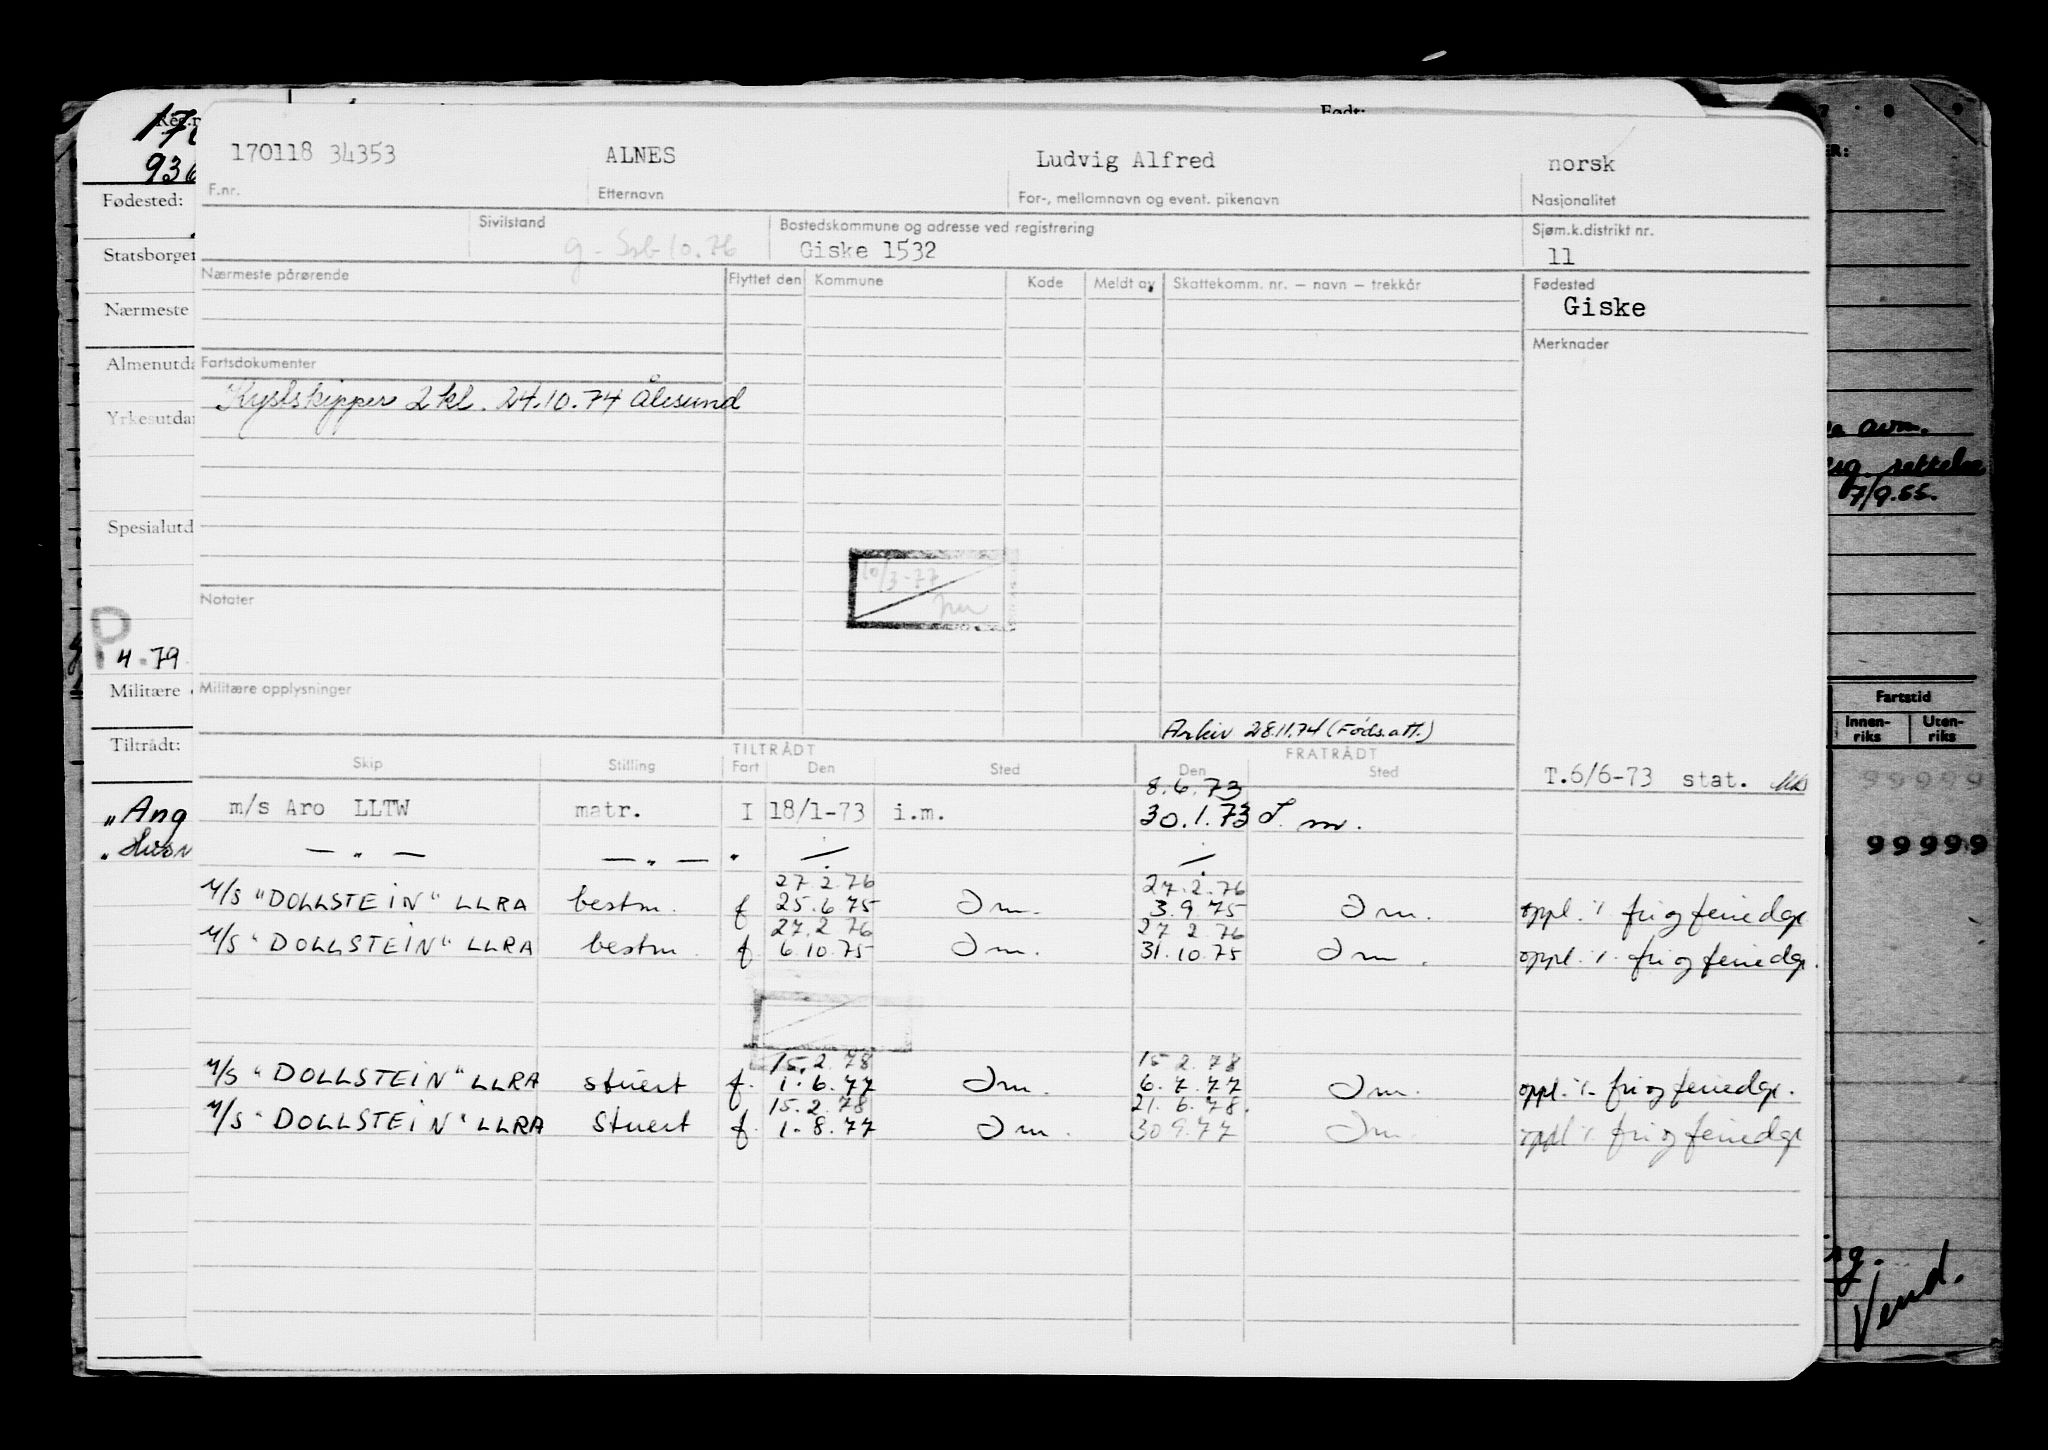 170118 34353 ALNES Ludvig Alfred norsk
F.nr. Etternavn For-, mellomnavn og event. pikenavn Nasjonalitet
Sivilstand Bostedskommune og adresse ved registrering Sjøm.k.distrikt nr.
Giske 1532 11
Nærmeste pårørende Flyttet den Kommune Kode Meldt av Skattekomm. nr. — navn — trekkår Fødested
Giske
Fartsdokumenter Merknader
Kystskipper 2 kl. 24.10.74 Ålesund
10/3-77
Notater
Militære opplysninger
Arkiv 28.11.74 (Føds.att.)
TILTRÅDT FRATRÅDT
Skip Stilling Fart Den Sted Den Sted
T.6/6-73 stat.
8.6.73
m/s Aro LLTW matr. I 18/1-73 i.m. 30.1.73
— " — — " — "
27.2.76 27.2.76
M/S "DOLLSTEIN" LLRA bestm. f 25.6.75 Im. 3.9.75 Im. oppl. i. fri og feriedgr
27.2.76 27.2.76
M/S "DOLLSTEIN" LLRA bestm. f. 6.10.75 Im. 31.10.75 Im. oppl. i. fri og feriedgr.
15.2.78 15.2.78
M/S "DOLLSTEIN" LLRA stuert f. 1.6.77 Im. 6.7.77 Im. oppl. i. fri og feriedgr.
15.2.78 21.6.78.
M/S "DOLLSTEIN" LLRA Stuert f. 1.8.77 Im. 30.9.77 Im. oppl i. fri og feriedgr
936
Fødested:
Statsborger
Nærmeste
Almenutda
Yrkesutdan
Spesialutd
P
4.79
Militære
Tiltrådt:
"Ang
Født:
avm.
rettelse
7/9.55.
Fartstid
Innen-riks Uten-riks
99999
99999
Vend.